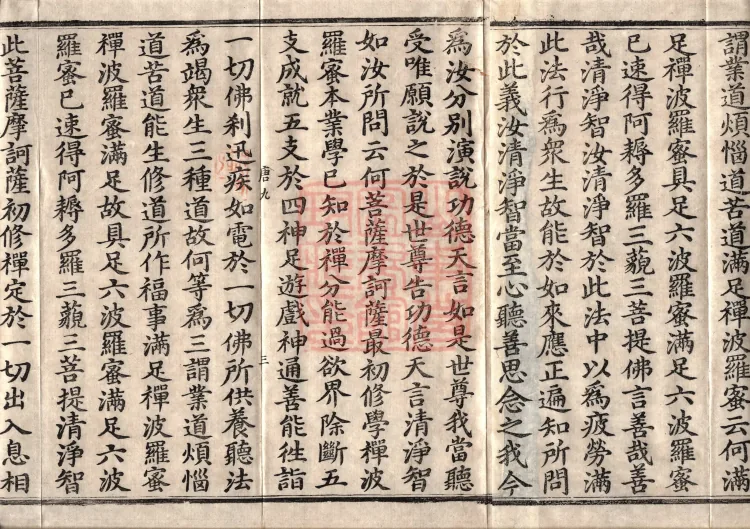 謂業道煩惱道苦道滿足禪波羅蜜云何滿
足禪波羅蜜具足六波羅蜜滿足六波羅蜜
已速得阿耨多羅三藐三菩提佛言善哉善
哉清淨智汝清淨智於此法中以爲疲勞滿
此法行爲衆生故能於如來應正遍知所問
於此義汝清淨智當至心聽善思念之我今
爲汝分別演說功德天言如是世尊我當聽
受唯願說之於是世尊告功德天言清淨智
如汝所問云何菩薩摩訶薩最初修學禪波
羅蜜本業學已知於禪分能過欲界除斷五
支成就五支於四神足遊戲神通善能徃詣
唐九 三
一切佛刹迅疾如電於一切佛所供養聽法
爲竭衆生三種道故何等爲三謂業道煩惱
道苦道能生修道所作福事滿足禪波羅蜜
禪波羅蜜滿足故具足六波羅蜜滿足六波
羅蜜已速得阿耨多羅三藐三菩提清淨智
此菩薩摩訶薩初修禪定於一切出入息相